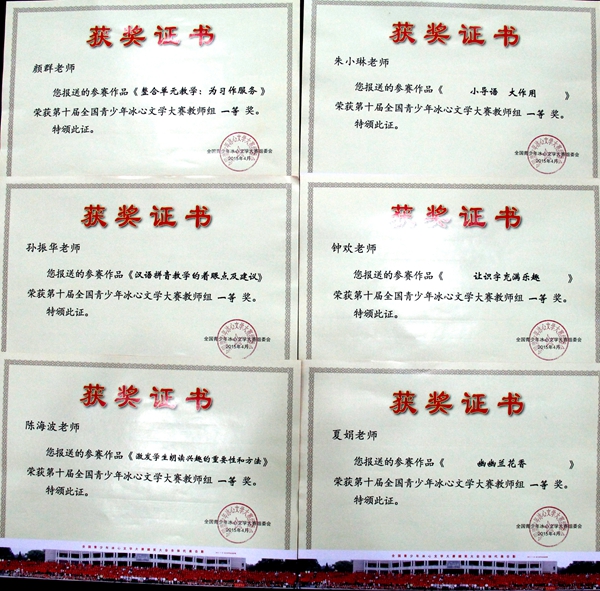 获奖证书
颜群老师
您报送的参赛作品《整合单元教学:为习作服务》
荣获第十届全国青少年冰心文学大赛教师组 一等 奖。
特颁此证。
全国青少年冰心文学大赛组委会
2015年4月
获奖证书
朱小琳老师
您报送的参赛作品《 小导语 大作用 》
荣获第十届全国青少年冰心文学大赛教师组 一等 奖。
特颁此证。
全国青少年冰心文学大赛组委会
2015年4月
获奖证书
孙振华老师
您报送的参赛作品《汉语拼音教学的着眼点及建议》
荣获第十届全国青少年冰心文学大赛教师组 一等 奖。
特颁此证。
全国青少年冰心文学大赛组委会
2015年4月
获奖证书
钟欢老师
您报送的参赛作品《 让识字充满乐趣 》
荣获第十届全国青少年冰心文学大赛教师组 一等 奖。
特颁此证。
全国青少年冰心文学大赛组委会
2015年4月
获奖证书
陈海波老师
您报送的参赛作品《激发学生朗读兴趣的重要性和方法》
荣获第十届全国青少年冰心文学大赛教师组 一等 奖。
特颁此证。
全国青少年冰心文学大赛组委会
2015年4月
获奖证书
夏娟老师
您报送的参赛作品《 幽幽兰花香 》
荣获第十届全国青少年冰心文学大赛教师组 一等 奖。
特颁此证。
全国青少年冰心文学大赛组委会
2015年4月